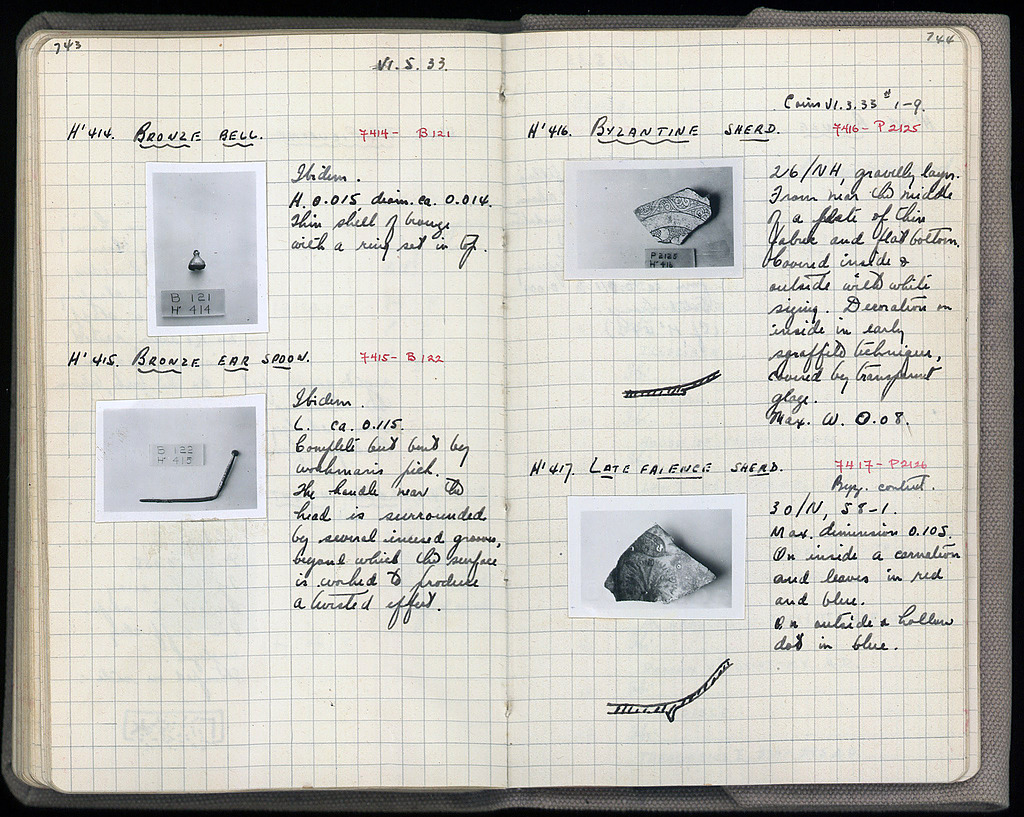 743
VI. S. 33.
H' 414. BRONZE BELL. 7414 - B 121
Ibidem.
H. 0.015, diam. ca. 0.014.
Thin shell of bronze
with a ring set in top.
B 121
H' 414
H' 415. BRONZE EAR SPOON. 7415 - B 122
Ibidem.
L. ca. 0.115.
Complete but bent by
workman's pick.
The handle near the
head is surrounded
by several incised grooves,
beyond which the surface
is worked to produce
a twisted effect.
B 122
H' 415
744
Coins VI. 3. 33 # 1-9.
H' 416. BYZANTINE SHERD. 7416 - P 2125
26/NH, gravelly layer.
From near the middle
of a plate of thin
fabric and flat bottom.
Covered inside &
outside with white
sizing. Decoration on
inside in early
sgraffito technique,
covered by transparent
glaze.
Max. W. 0.08.
P 2125
H' 416
H' 417. LATE FAIENCE SHERD. 7417 - P2126
Byz. context.
30/N, 58-1.
Max. dimension 0.105.
On inside a carnation
and leaves in red
and blue.
On outside a hollow
dot in blue.